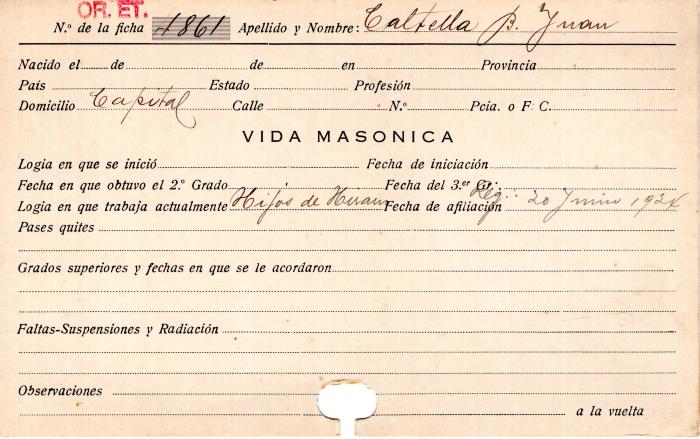 OR. ET.
N.º de la ficha 4861 Apellido y Nombre: Caltella B. Juan
Nacido el de de en Provincia
País Estado Profesión
Domicilio Capital Calle N.º Pcia. o F. C.
VIDA MASONICA
Logia en que se inició Fecha de iniciación
Fecha en que obtuvo el 2.º Grado Fecha del 3.er Gr.
Logia en que trabaja actualmente Hijos de Hiram Fecha de afiliación Reg.: 20 Junio 1924
Pases quites
Grados superiores y fechas en que se le acordaron
Faltas-Suspensiones y Radiación
Observaciones
a la vuelta